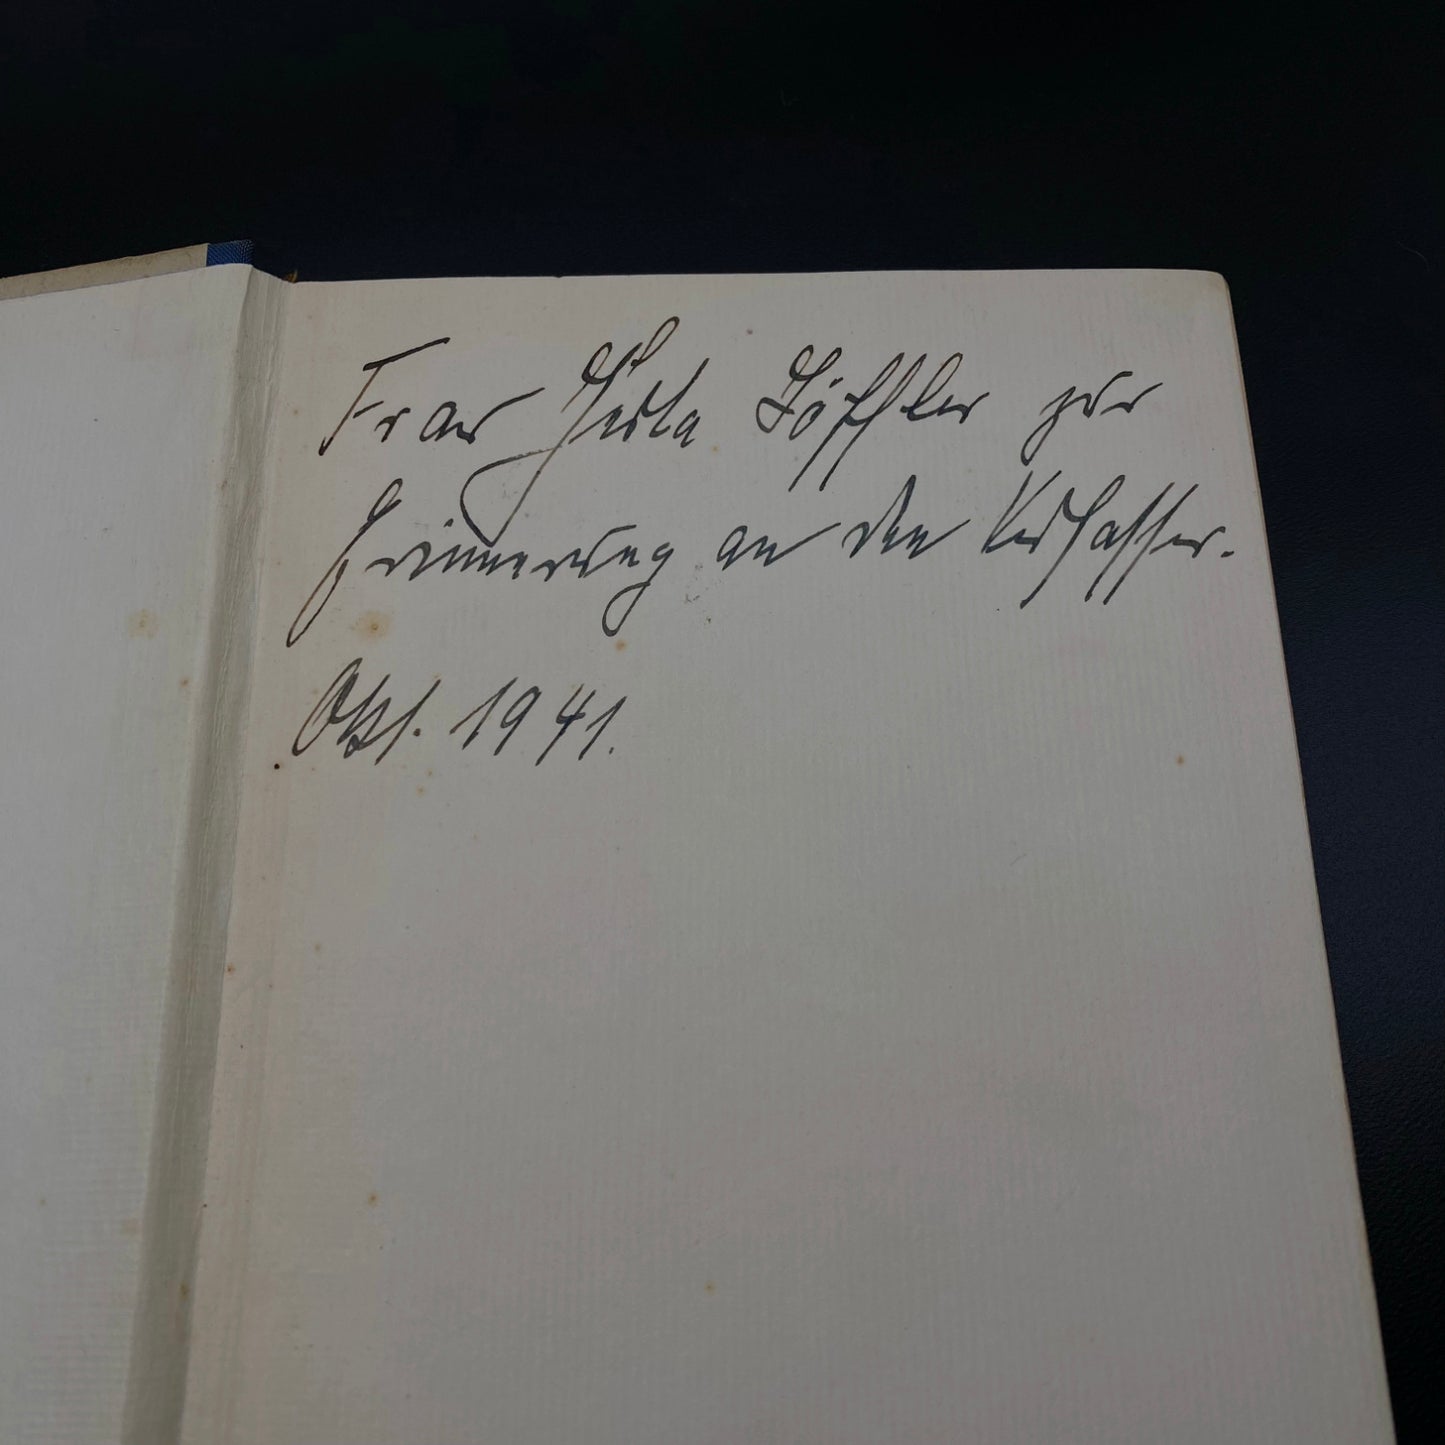 Frau Herta Löffler zur
Erinnerung an den Verfasser.
Okt. 1941.